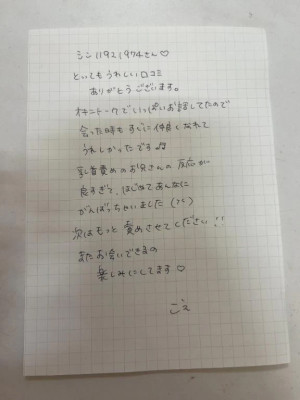 シン11921974さん♡
とってもうれしい口コミ
ありがとうございます。
オキニトークでいっぱいお話してたので
会った時もすぐに仲良くなれて
うれしかったです♫
乳首責めのお兄さんの反応が
良すぎて、はじめてあんなに
がんばっちゃいました(笑)
次はもっと責めさせてください!!
またお会いできるの
楽しみにしてます♡